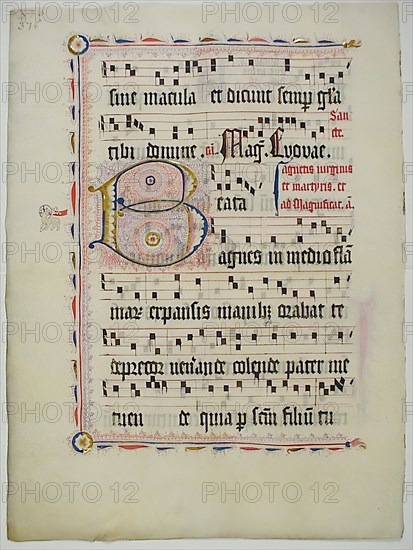 sine macula et dicunt semp gła
tibi domine. añ. Mag. Evovae.
San
cte
agnetis virginis
et martyris. et
ad Magnificat. a.
Beata
agnes in medio flā
marȝ expansis manibȝ orabat te
deprecor venerande colende pater me
tuen de quia p scm̄ filiū tu
PHOTO 12